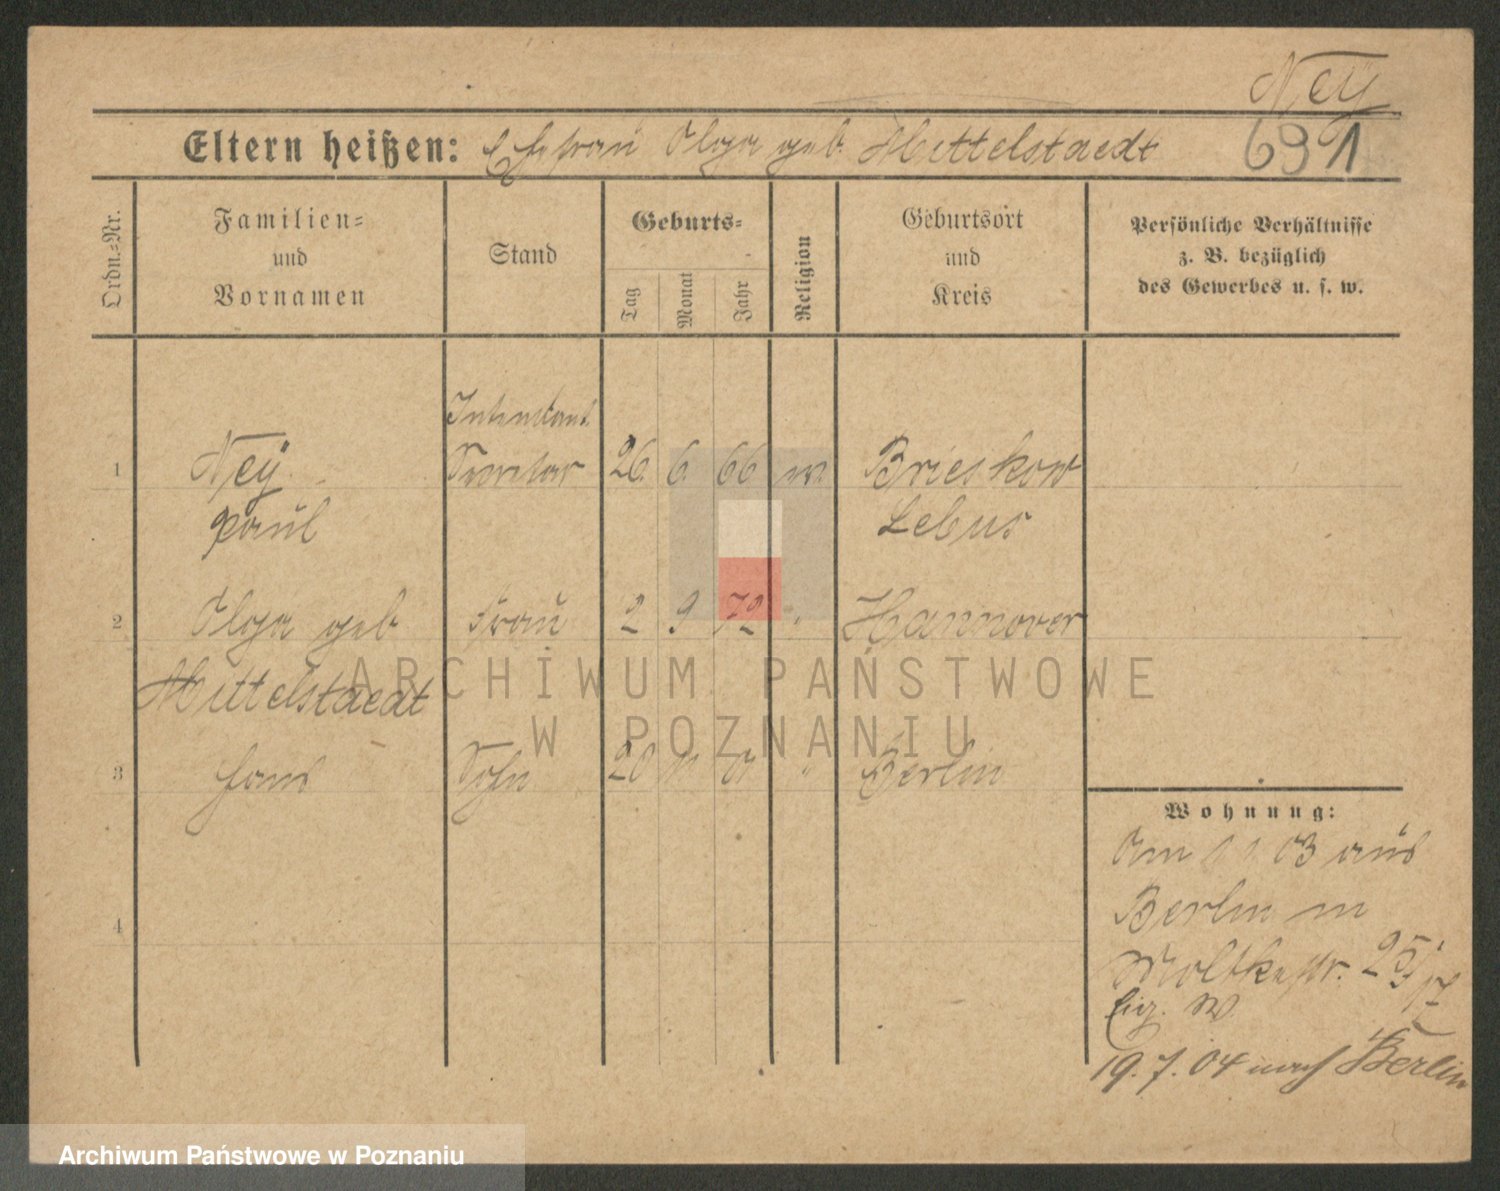 Ney
691
Eltern heißen: Ehefrau Olga geb. Mittelstaedt
Ordn.=Nr.
Familien=
und
Vornamen
Stand
Geburts=
Tag
Monat
Jahr
Religion
Geburtsort
und
Kreis
Persönliche Verhältnisse
z. B. bezüglich
des Gewerbes u. s. w.
Intendant.
1 Neÿ Secretär 26. 6. 66 Brieskow
Paul Lebus
2 Olga geb Frau 2 9 72 " Hannover
Mittelstaedt
3 Hans Sohn 20 " Berlin
4
Wohnung:
Am 1 1 03 aus
Berlin in
Moltkestr. 25/17
Eig. W
19.7.04 nach Berlin
ARCHIWUM PAŃSTWOWE
W POZNANIU
Archiwum Państwowe w Poznaniu